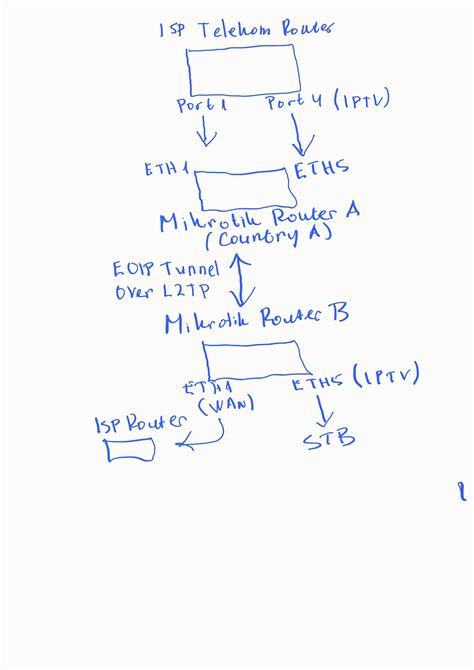 ISP Telekom Router
Port 1
Port 4 (IPTV)
ETH1
ETH5
Mikrotik Router A
(Country A)
EOIP Tunnel
Over L2TP
Mikrotik Router B
ETH1
(WAN)
ETH5 (IPTV)
ISP Router
STB